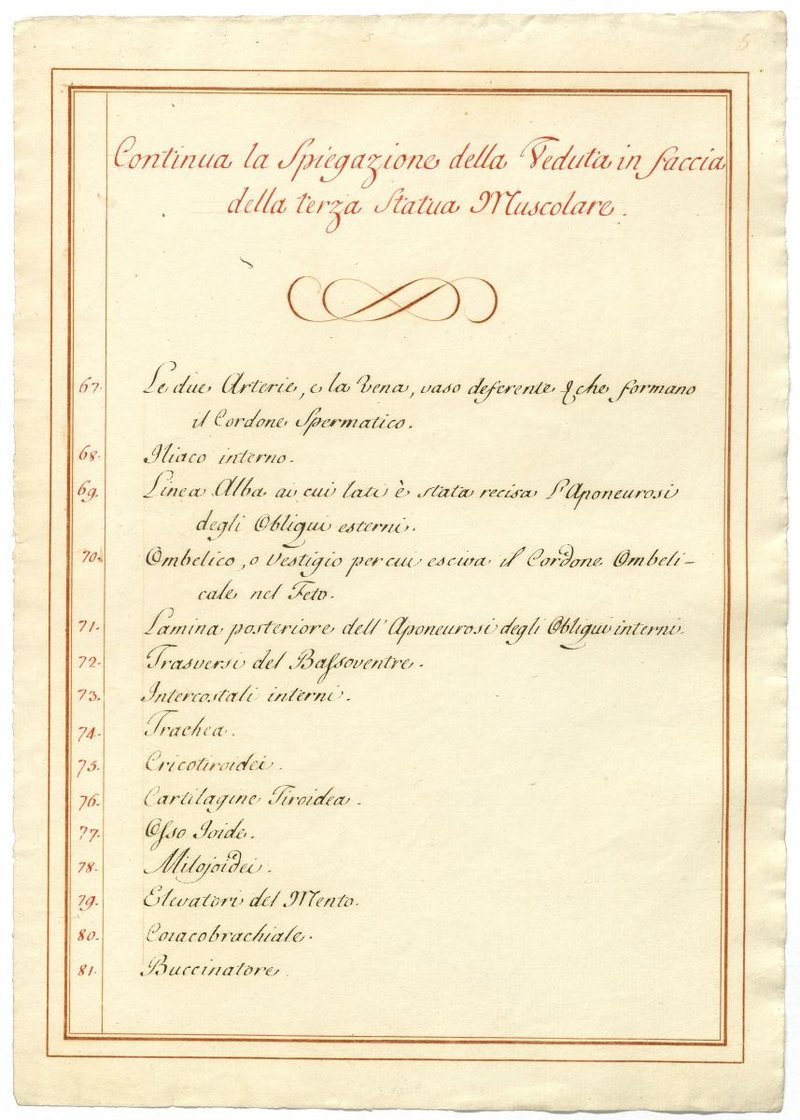 5
Continua la Spiegazione della Veduta in faccia
della terza Statua Muscolare.
67. Le due Arterie, e la Vena, vaso deferente & che formano
il Cordone Spermatico.
68. Iliaco interno.
69. Linea Alba ai cui lati è stata recisa l'Aponeurosi
degli Obliqui esterni.
70. Ombelico, o Vestigio per cui esciva il Cordone Ombeli-
cale nel Feto.
71. Lamina posteriore dell'Aponeurosi degli Obliqui interni.
72. Trasversi del Bassoventre.
73. Intercostali interni.
74. Trachea.
75. Cricotiroidei.
76. Cartilagine Tiroidea.
77. Osso Ioide.
78. Milojoidei.
79. Elevatori del Mento.
80. Coracobrachiale.
81. Buccinatore.